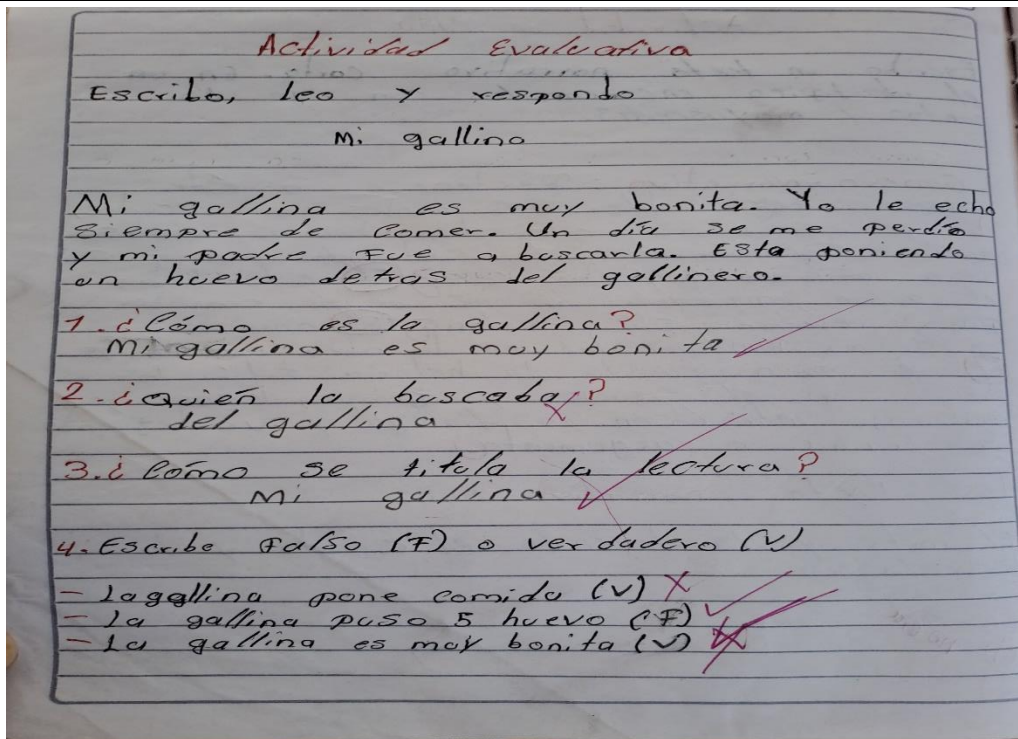 Actividad Evaluativa
Escribo, leo y respondo
Mi gallina
Mi gallina es muy bonita. Yo le echo
siempre de comer. Un día se me perdío
y mi padre Fue a buscarla. Esta poniendo
un huevo detras del gallinero.
1. ¿Cómo es la gallina?
Mi gallina es muy bonita
2. ¿Quién la buscaba?
del gallina
3. ¿Cómo se titula la lectura?
Mi gallina
4. Escribe Falso (F) o verdadero (V)
- La gallina pone comida (V)
- La gallina puso 5 huevo (F)
- La gallina es muy bonita (V)